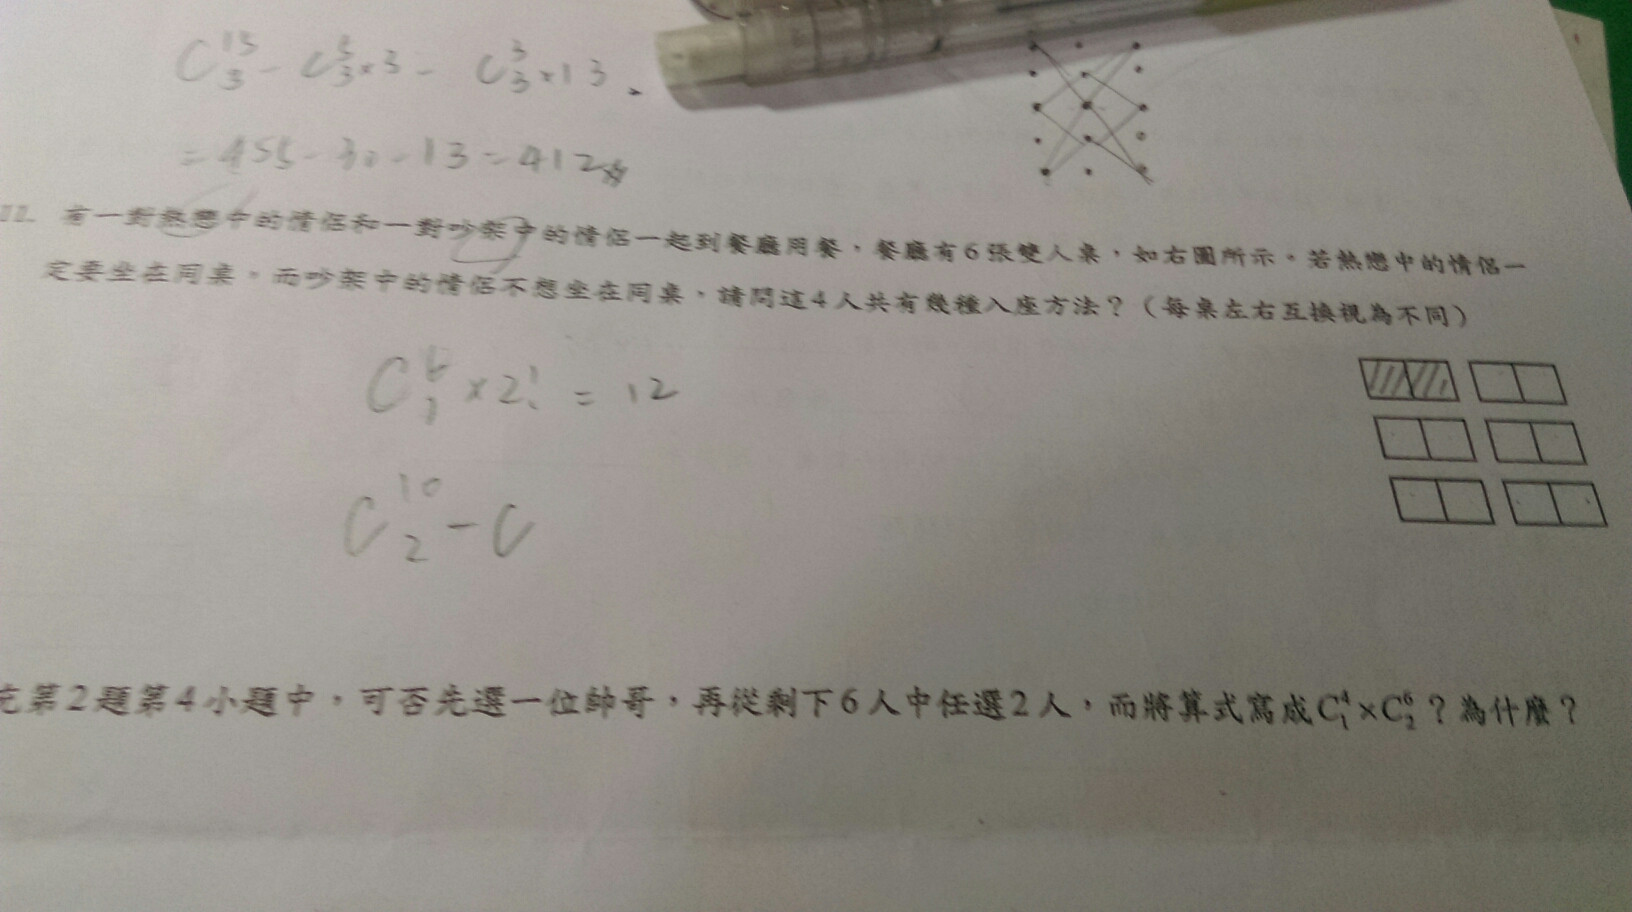 C¹⁵₃ - C⁵₃×3 - C³₃×13
= 455 - 30 - 13 = 412
11. 有一對熱戀中的情侶和一對吵架中的情侶一起到餐廳用餐，餐廳有6張雙人桌，如右圖所示。若熱戀中的情侶一
定要坐在同桌，而吵架中的情侶不想坐在同桌，請問這4人共有幾種入座方法？（每桌左右互換視為不同）
C⁶₁ × 2! = 12
C¹⁰₂ - C
第2題第4小題中，可否先選一位帥哥，再從剩下6人中任選2人，而將算式寫成C⁴₁×C⁶₂？為什麼？